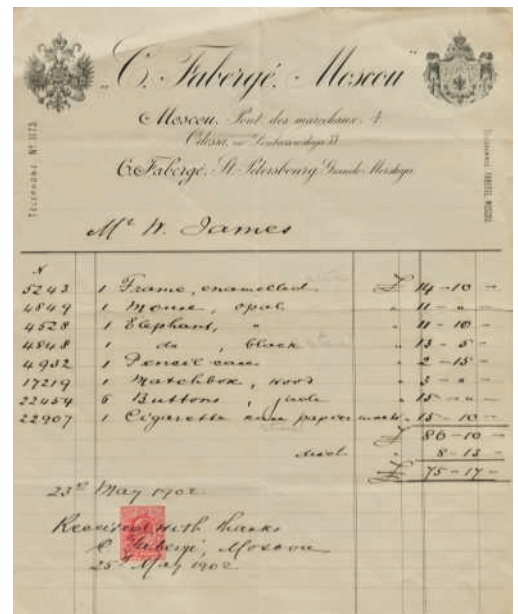 „C. Fabergé. Moscou“
Moscou. Pont des maréchaux. 4
Odessa,
C. Fabergé. St. Pétersbourg, Grande Morskaja
TELEPHONE Nº 1173
FABERGÉ, MOSCOU
Mr W. James
N
5243 1 Frame, enamelled £ 14-10 -
4849 1 Mouse, opal " 11 - " -
4528 1 Elephant, " " 11 - 10 -
4848 1 do , black " 13 - 5 -
4932 1 Pencil case " 2 - 15 -
17219 1 Matchbox, wood " 3 - " -
22454 6 Buttons, jade " 15 - " -
22907 1 Cigarette case papier maché " 15 - 10 -
£ 86-10 -
8-13 -
£
23rd May 1902.
Received with thanks
C Fabergé, Moscou
25th May 1902